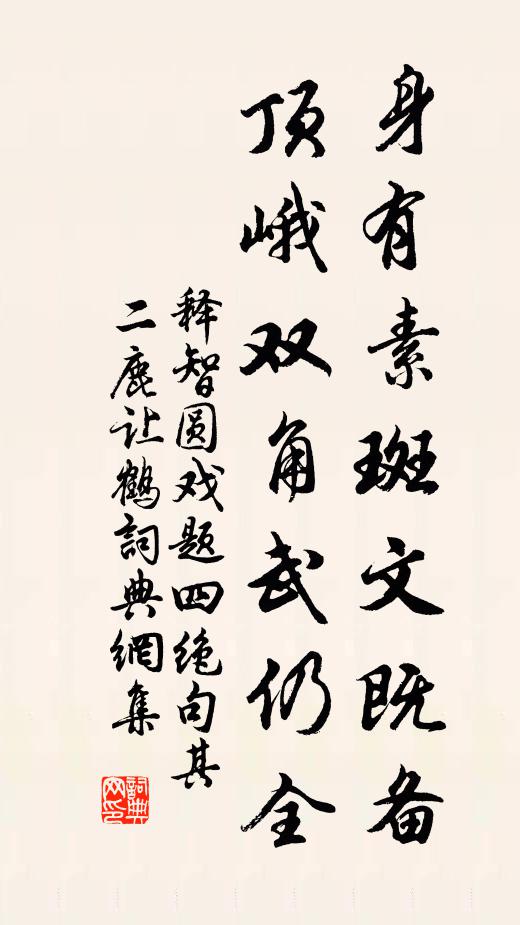 身有素斑文既备
顶峨双角武仍全
释智圆戏题四绝句其
二鹿让鹤詞典網集
詞典
网印